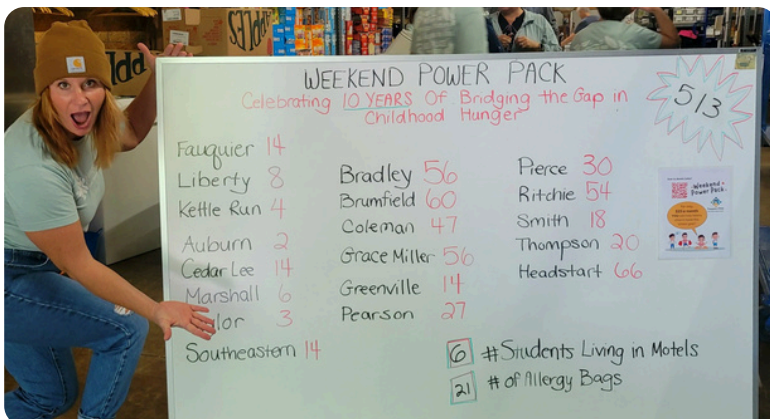 WEEKEND POWER PACK
Celebrating 10 YEARS Of Bridging the Gap in
Childhood Hunger
513
Fauquier 14
Liberty 8
Kettle Run 4
Auburn 2
Cedar Lee 14
Marshall 6
lor 3
Southeastern 14
Bradley 56
Brumfield 60
Coleman 47
Grace Miller 56
Greenville 14
Pearson 27
Pierce 30
Ritchie 54
Smith 18
Thompson 20
Headstart 66
Weekend
Power Pack
6 #Students Living in Motels
21 # of Allergy Bags
APPLES